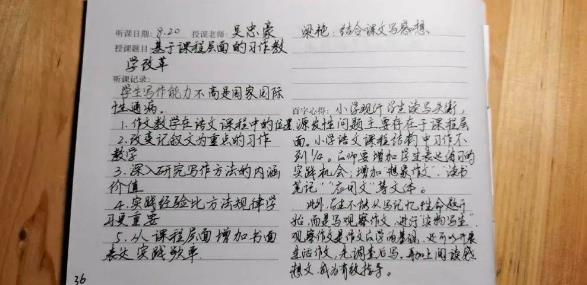 听课日期: 9.20 授课老师: 吴忠豪
授课题目: 基于课程层面的习作教
学改革
听课记录:
学生写作能力不高是国家国际
性通病。
1.作文教学在语文课程中的位置
2.改变记叙文为重点的习作
教学
3.深入研究写作方法的内涵
价值
4.实践经验比方法规律学
习更重要
5.从课程层面增加书面
表达实践效率
36
梁艳: 结合课文写感想
百字心得: 小学现行学生读写失衡,
源发性问题主要存在于课程层
面。小学语文课程结构中习作不
到1/4。后即要增加学生表达练习的
实践机会,增加“想象作文”、“读书
笔记”“应用文”等文体。
此外,学生不能从写记忆性命题开
始,而是写观察作文,进行“读物写生”,
观察作文是作文教学的基础,还可以开展
生活作文,先调查后写,再加上阅读感
想文,成为有效指导。